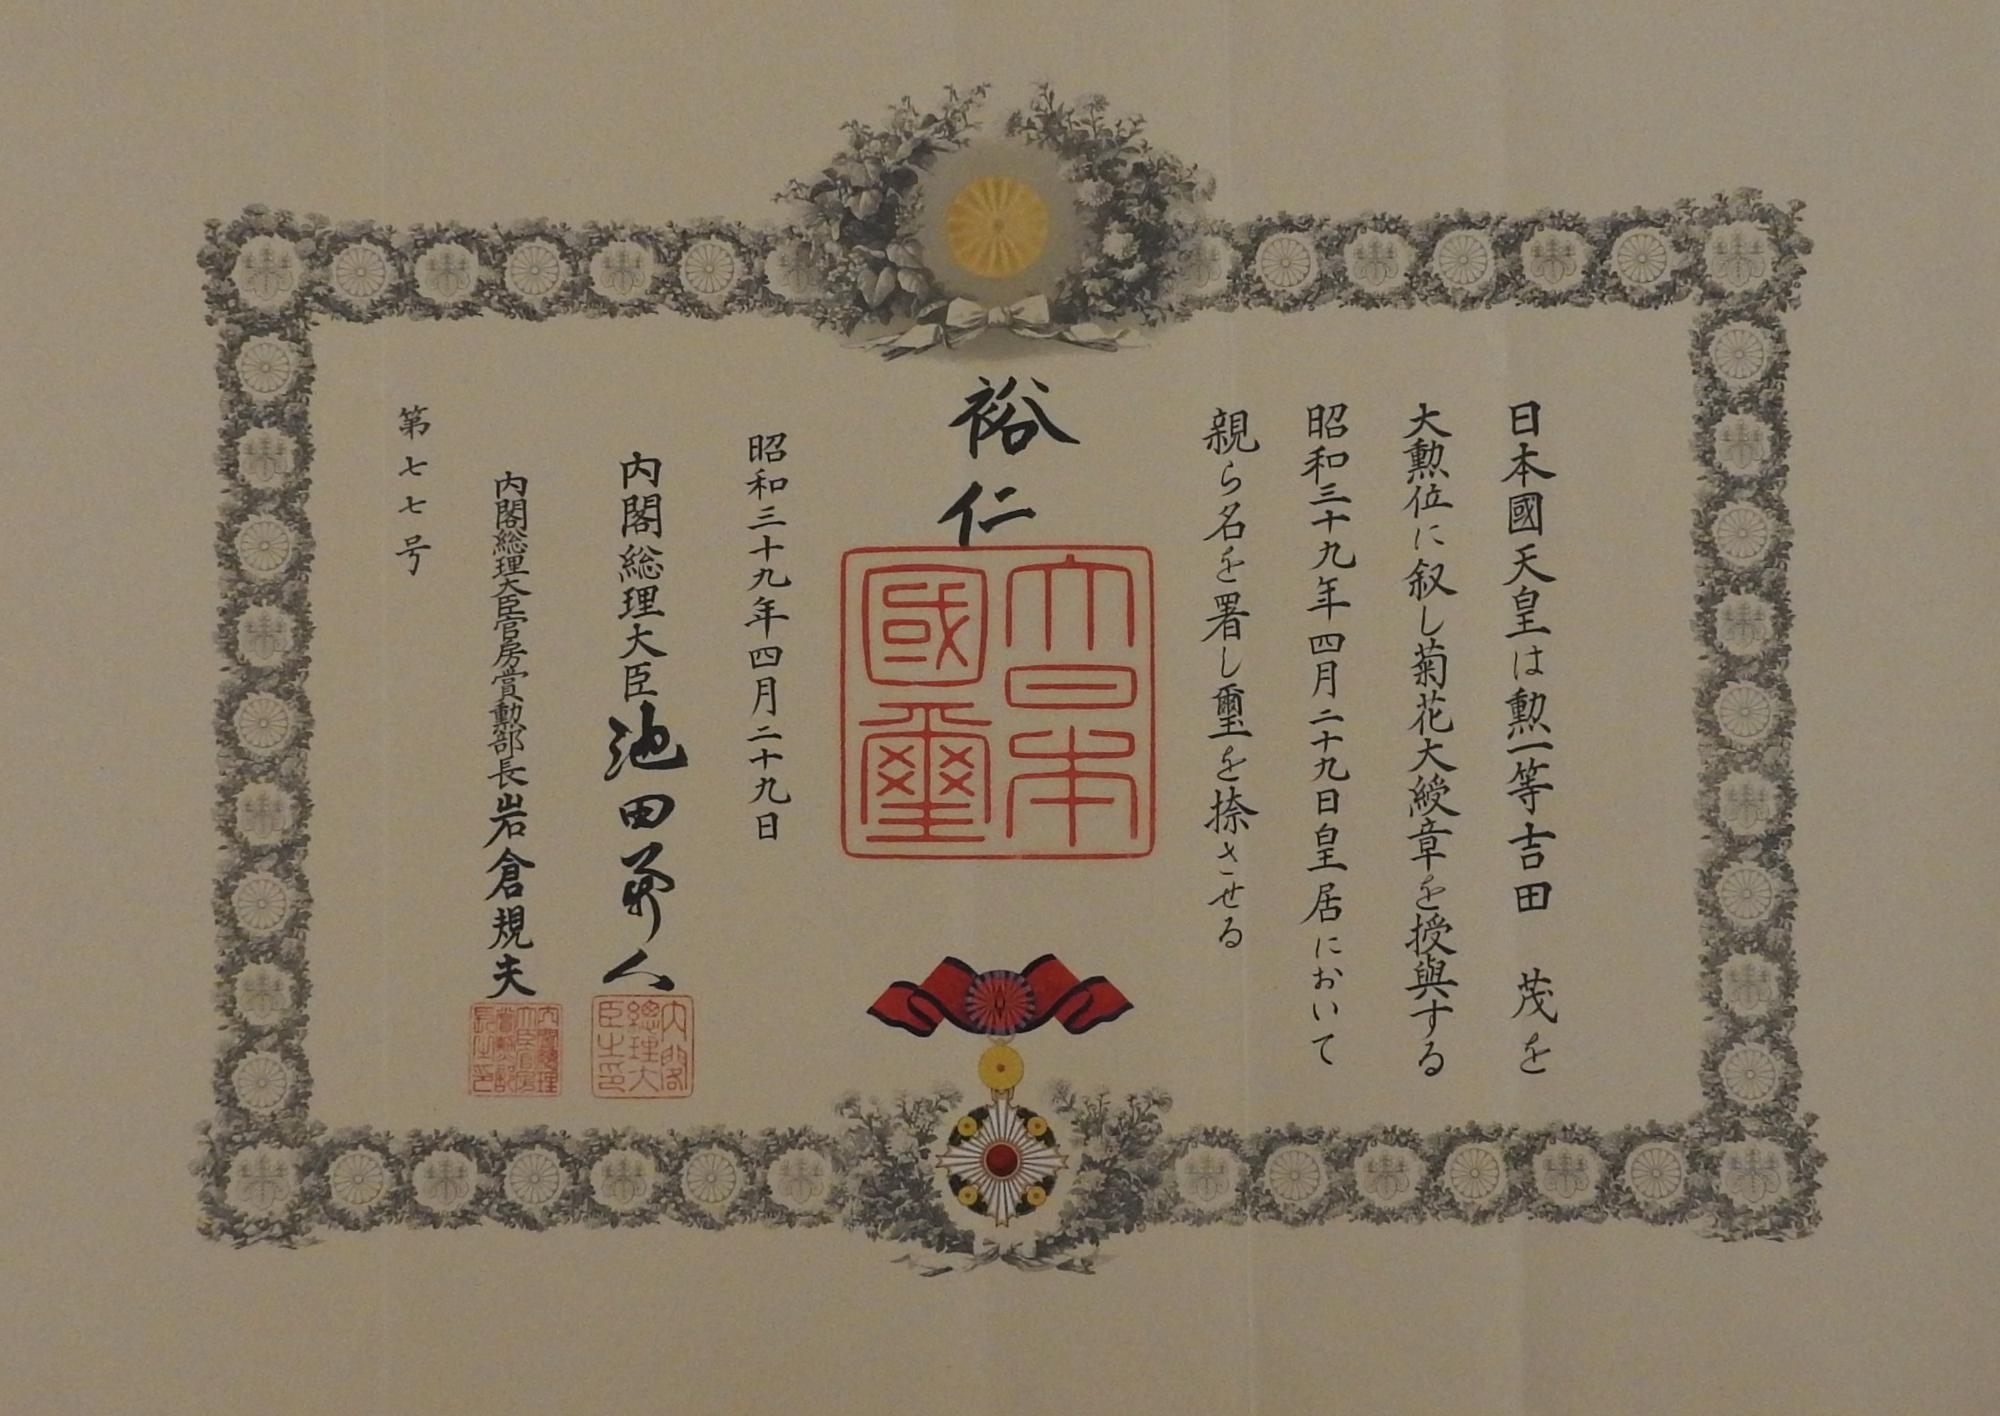 日本國天皇は勲一等吉田　茂を
大勲位に叙し菊花大綬章を授與する
昭和三十九年四月二十九日皇居において
親ら名を署し璽を捺させる
裕仁
大日本國璽
昭和三十九年四月二十九日
内閣総理大臣池田勇人
内閣総理大臣之印
内閣総理大臣官房賞勲部長岩倉規夫
内閣總理大臣官房賞勲部長之印
第七七号